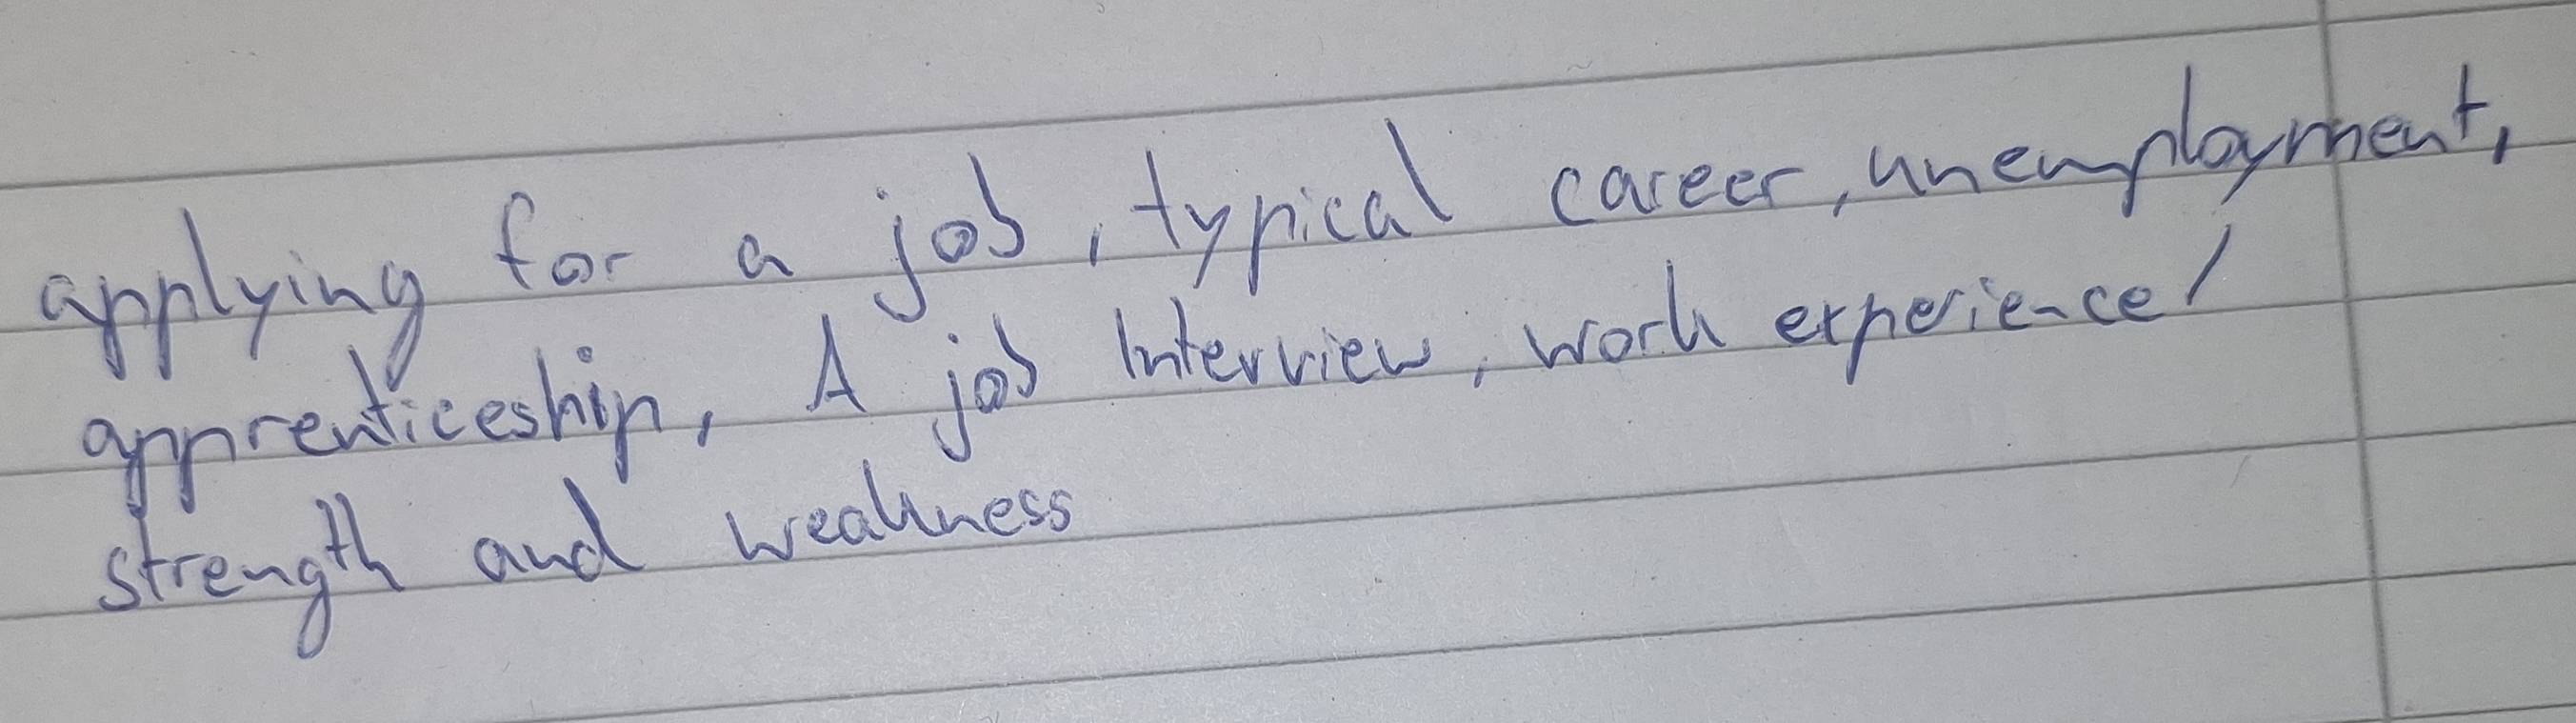 applying for a job, typical career, unemployment,
apprenticeship, A job Interview, work experience/
strength and weakness